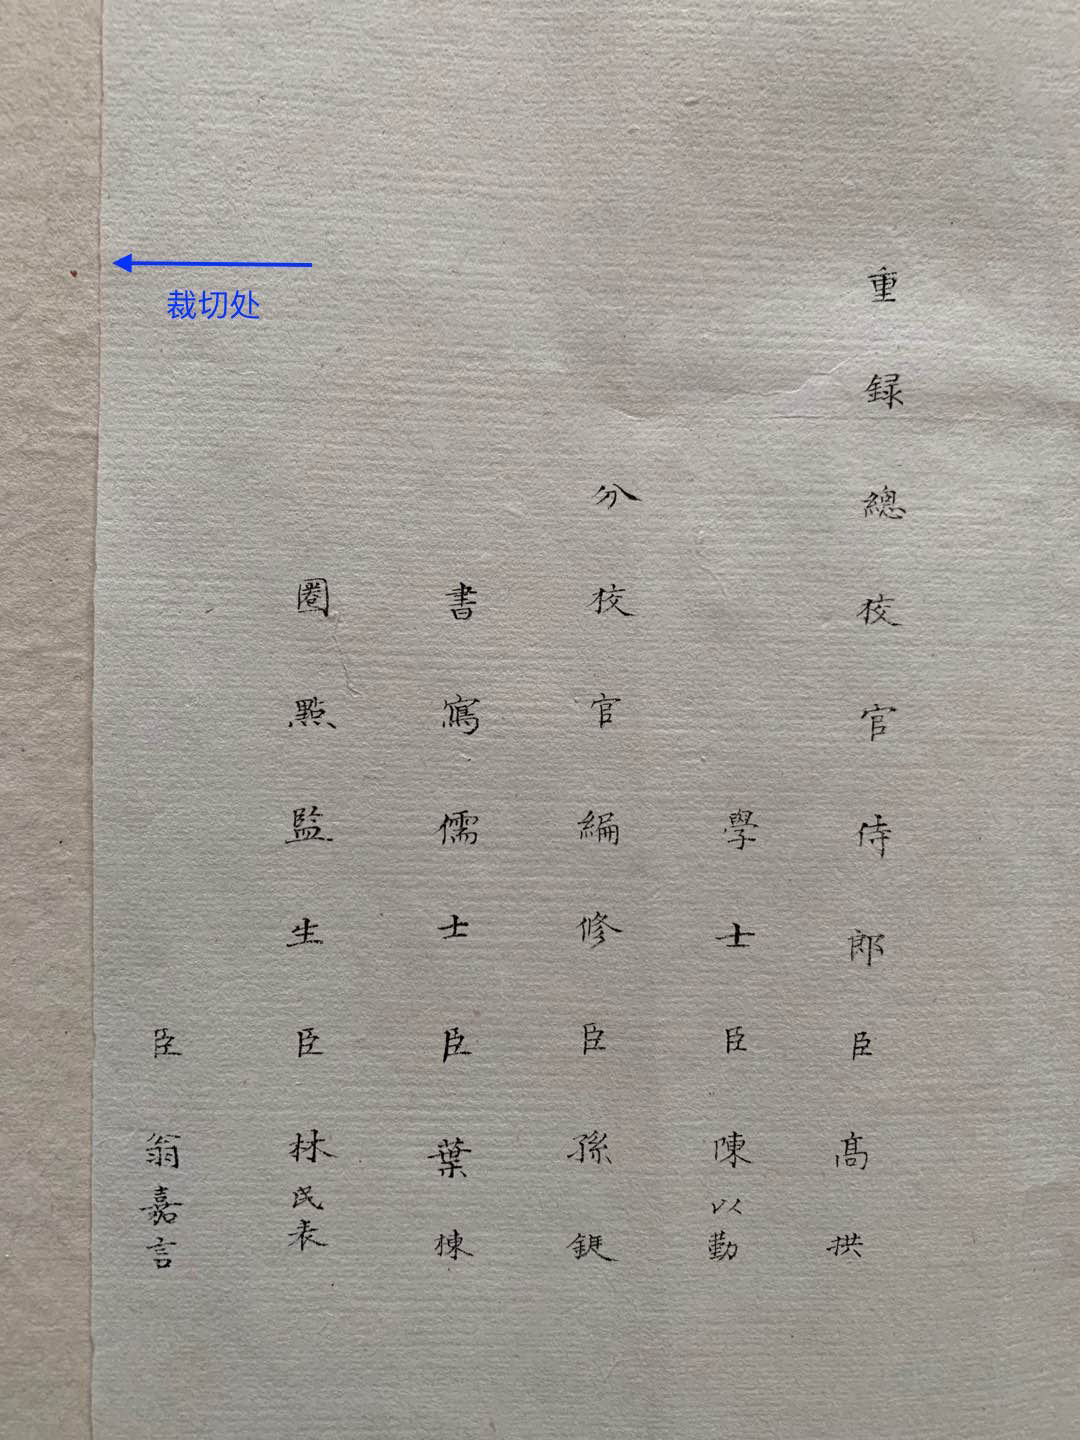 重録總校官侍郎臣高拱
學士臣陳以勤
分校官編修臣孫鋌
書寫儒士臣葉棟
圈點監生臣林民表
臣翁嘉言
裁切处